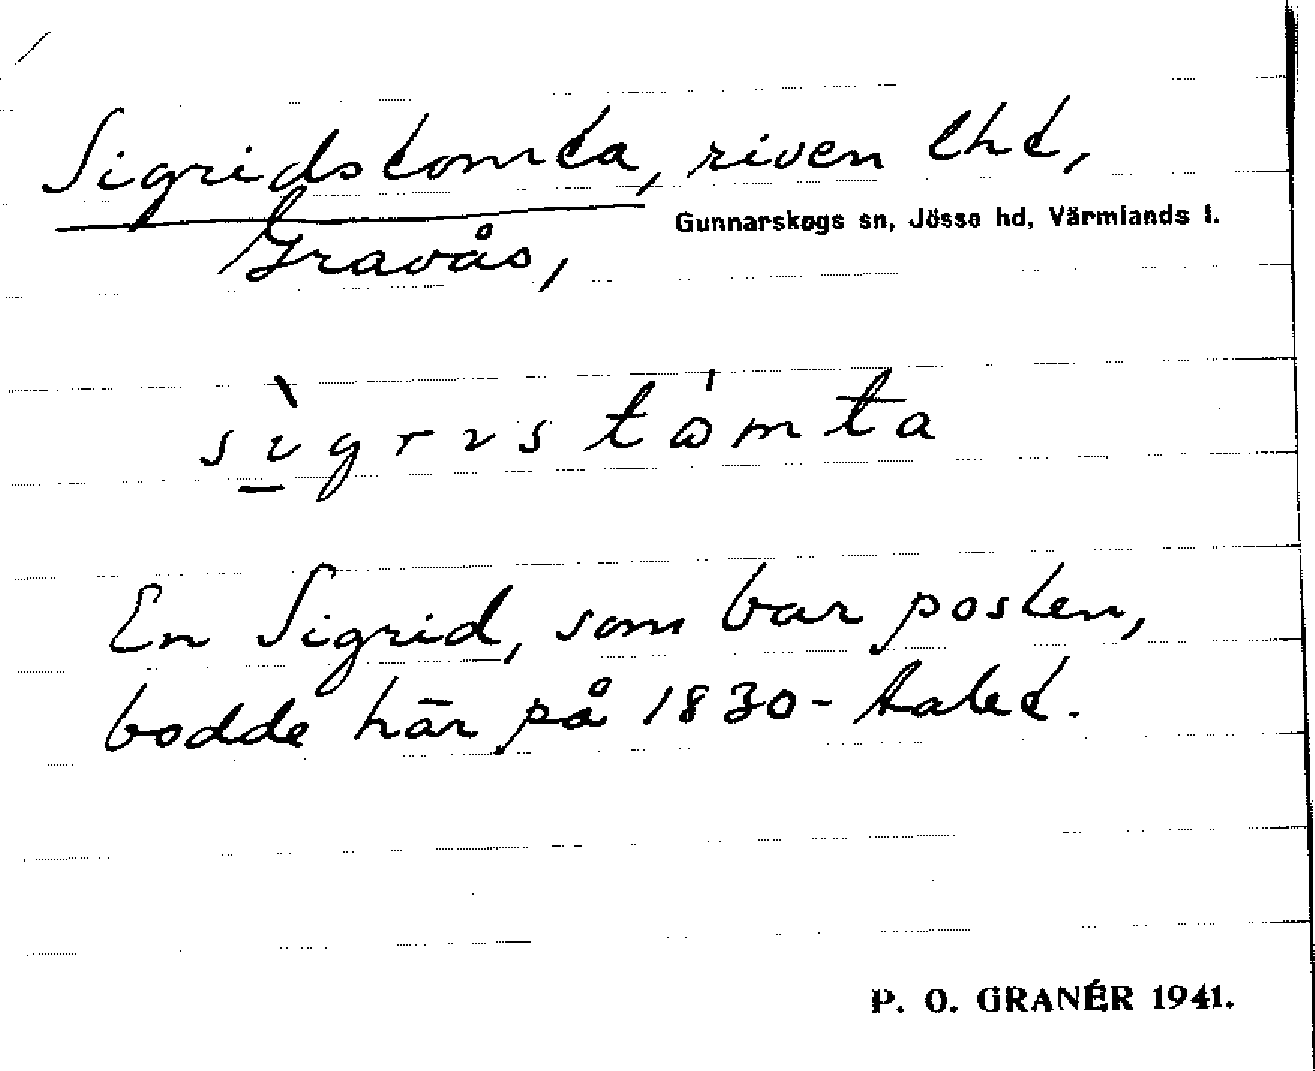 Sigridstomta, riven lht,
Gunnarskogs sn, Jösse hd, Värmlands l.
Gravås,
sìgrıstòmta
En Sigrid, som bar posten,
bodde här på 1830-talet.
P. O. GRANÉR 1941.